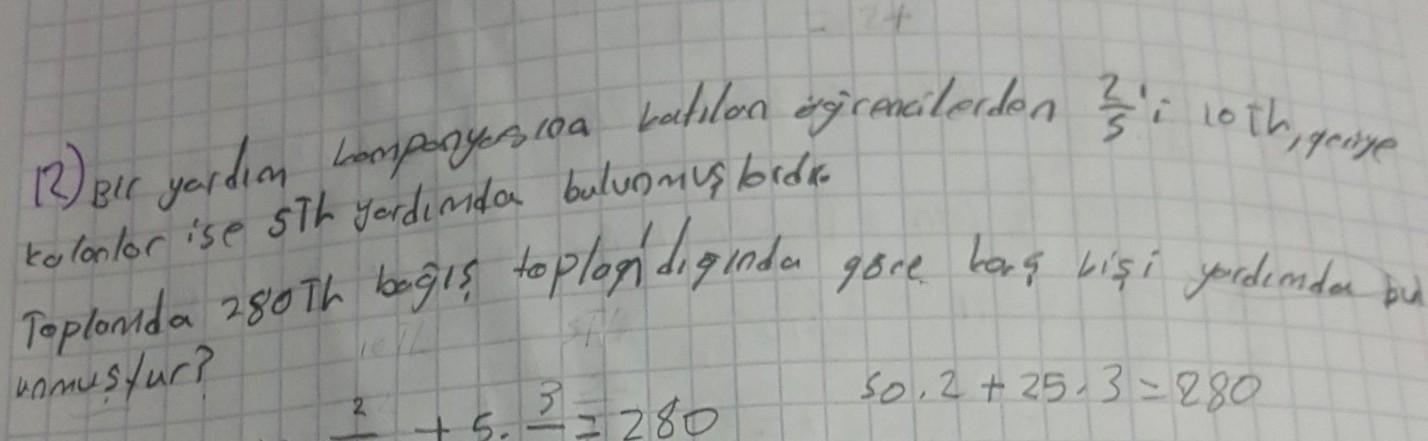 12) Bir yardım kampanyasına katılan öğrencilerden 2/5'i 10 TL, geriye
kalanlar ise 5TL yardımda bulunmuşlardır.
Toplamda 280TL bağış toplandığında göre kaç kişi yardımda bu
unmuştur?
2 + 5. 3 = 280
50.2 + 25.3 = 280